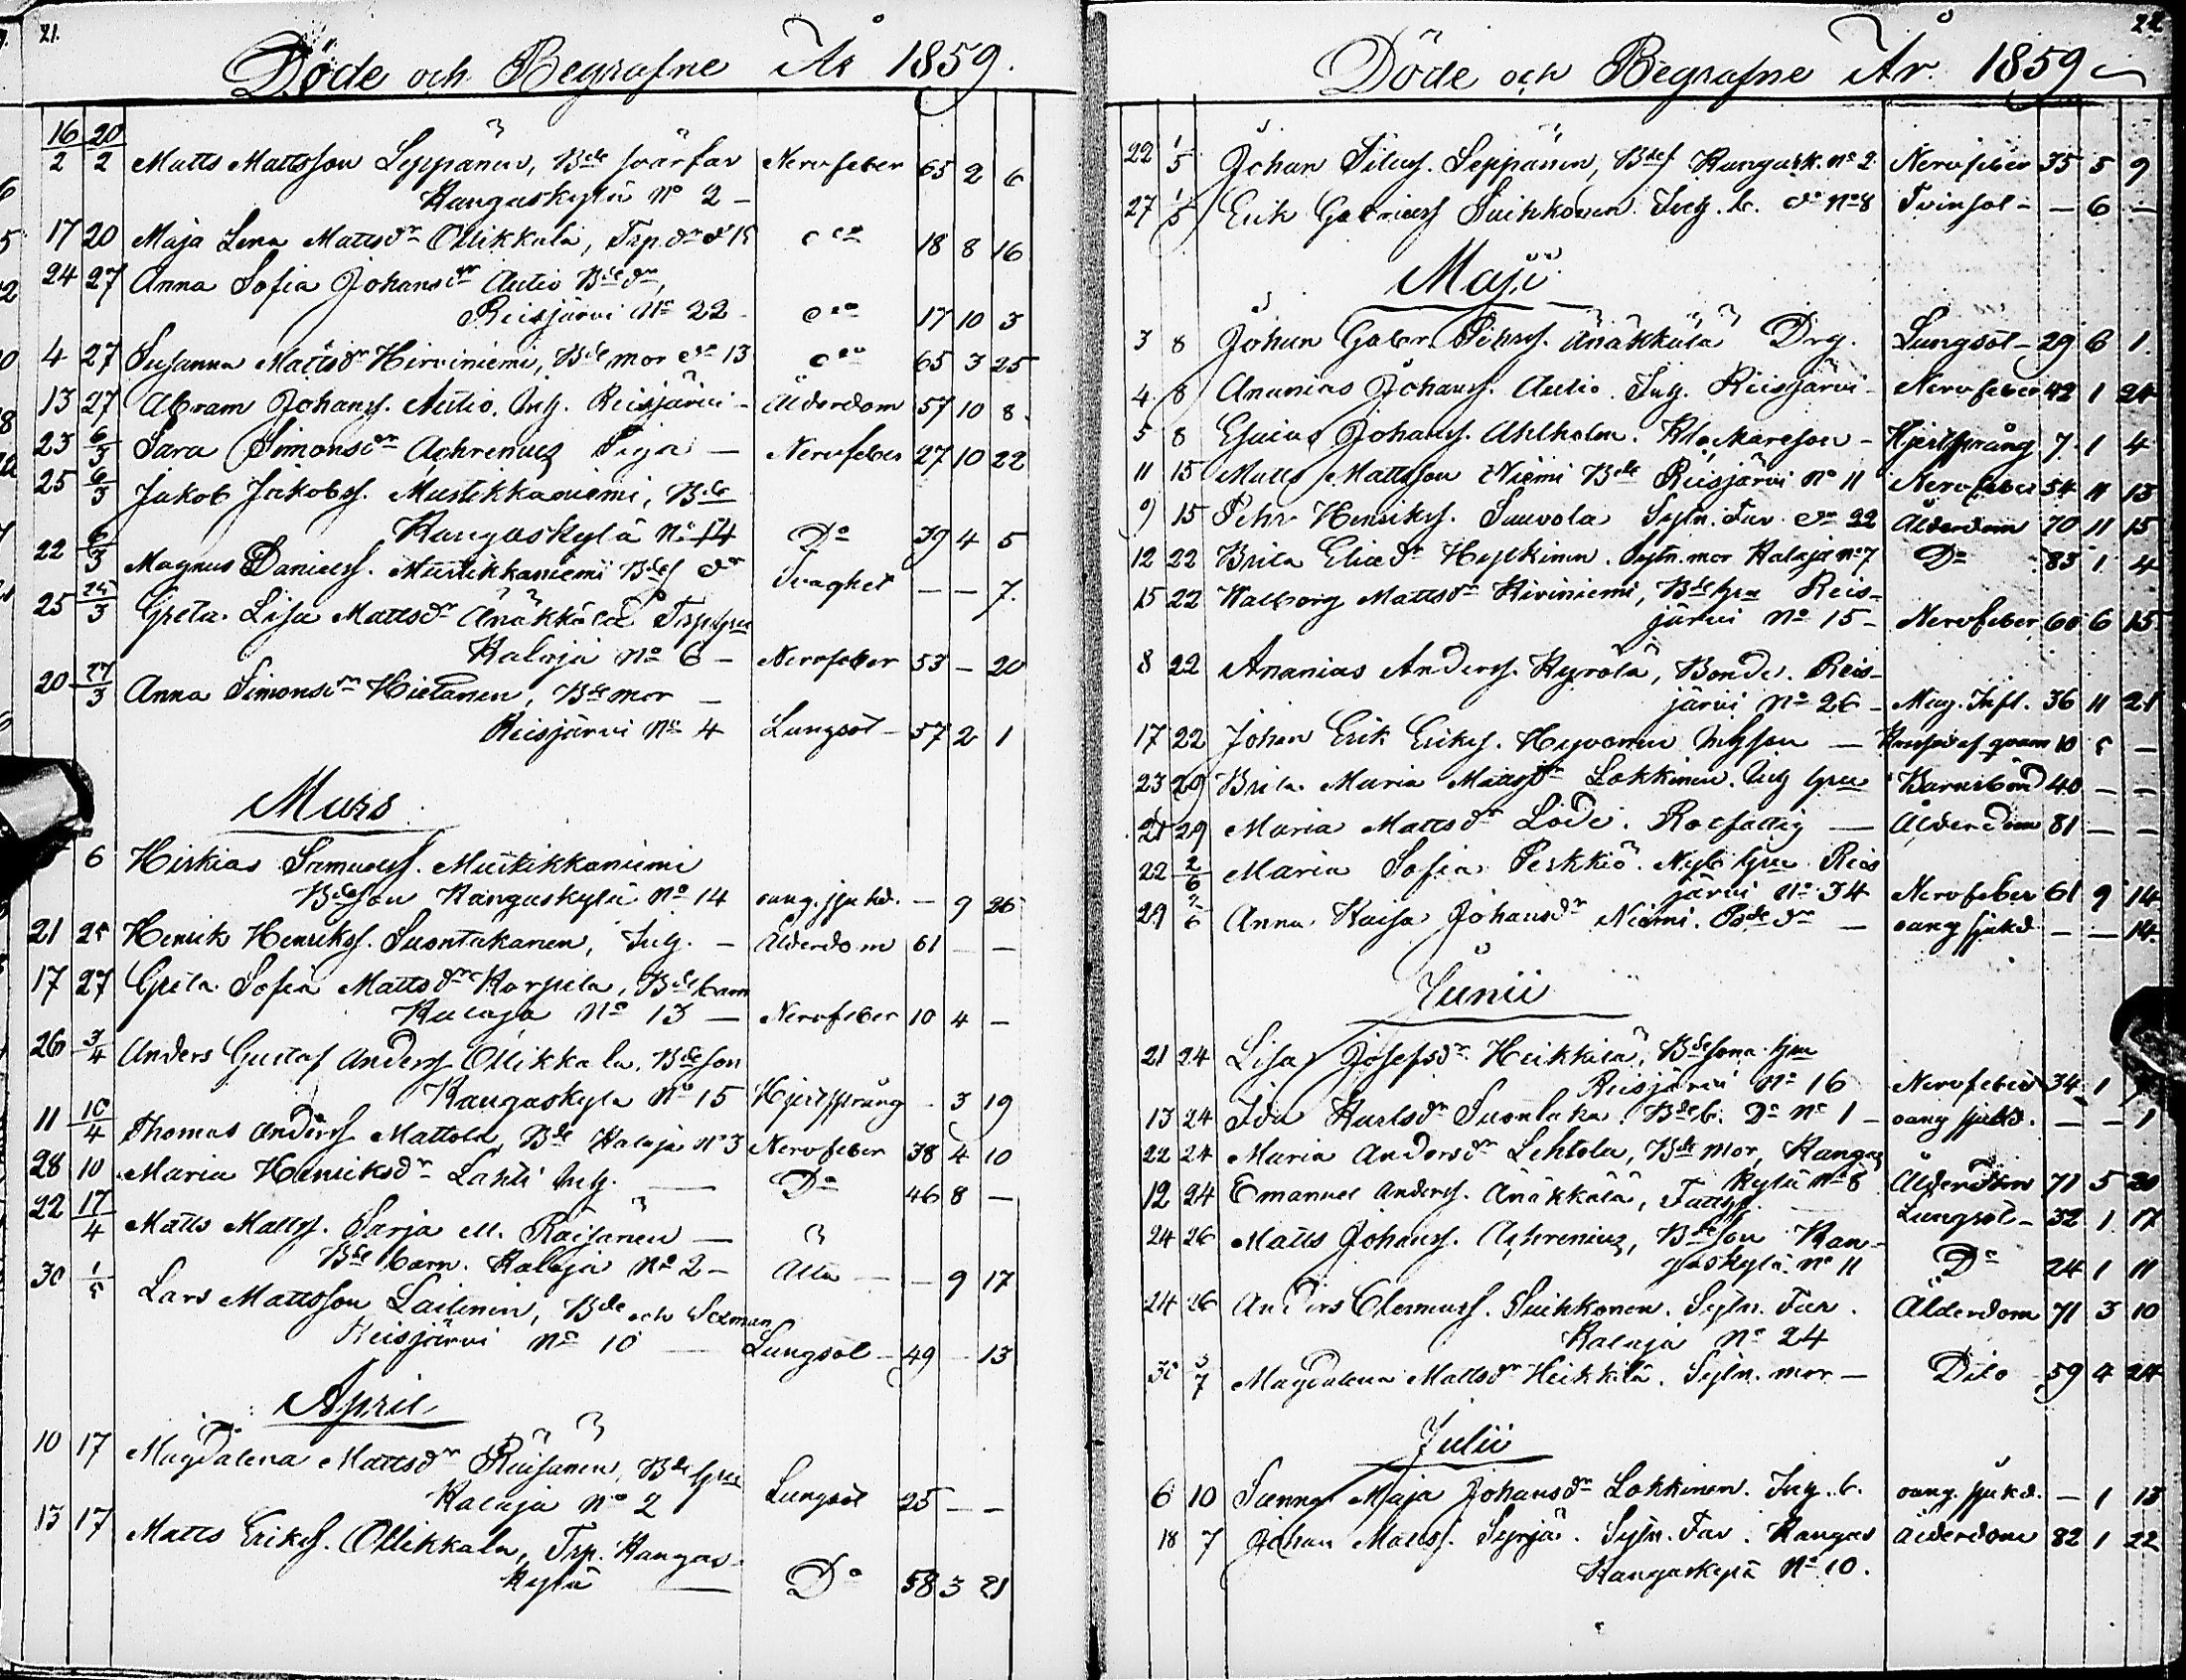 21.
Döde och Begrafne År 1859.
16/2 20/2 Matts Mattsson Leppänen, Bde svärfar Nervfeber 65 2 6
Kangaskylä No 2 -
17 20 Maja Lena Mattsdr Ollikkala, Trp. dr do 15 do 18 8 16
24 27 Anna Sofia Johansdr Autio Bde dr,
Reisjärvi No 22 - do 17 10 3
4 27 Susanna Mattsdr Hirviniemi, Bde mor do 13 do 65 3 25
13 27 Abram Johanss. Autio. Inh. Reisjärvi - Ålderdom 57 10 8
23 6/3 Sara Simonsdr Achrenius Piga - Nervfeber 27 10 22
25 6/3 Jakob Jakobss. Mustikkaniemi, Bde
Kangaskylä No 14 Do 39 4 5
22 6/3 Magnus Daniels. Mustikkaniemi Bdes do Svaghet - - 7.
25 25/3 Greta Lisa Mattsdr Änäkkälä Trphu
Kalaja No 6 - Nervfeber 53 - 20
20 27/3 Anna Simonsdr Hietanen, Bde mor -
Reisjärvi No 4 Lungsot - 57 2 1
Mars
6 Hiskias Samuelss. Mustikkaniemi
Bdeson Kangaskylä No 14 oang. sjukd. - 9 26
21 25 Henrik Henrikss. Suontakanen, Inh. - Ålderdom 61 - -
17 27 Greta Sofia Mattsdr Korpela, Bdebarn
Kalaja No 13 - Nervfeber 10 4 -
26 3/4 Anders Gustaf Anderss Ollikkala, Bdeson
Kangaskylä No 15 Hjertsprång - 3 19
11 10/4 Thomas Anderss Mattola, Bde Kalaja No 3 Nervfeber 38 4 10
28 10 Maria Henriksdr Lahti Inh. - Do 46 8 -
22 17/4 Matts Mattss. Sarja M. Räisänen -
Bde barn. Kalaja No 2 - Älta - - 9 17
30 1/5 Lars Mattsson Laitinen, Bde och Sexman
Reisjärvi No 10 - Lungsot - 49 - 13
April
10 17 Magdalena Mattsdr Räisänen, Bde hu
Kalaja No 2 Lungsot 25 - -
13 17 Matts Erikss. Ollikkala, Trp. Kangas-
kylä - Do 58 3 21
22
Döde och Begrafne År 1859
22 1/5 Johan Silass. Leppänen, Bdes Kangask. No 2. Nervfeber 35 5 9
27 1/5 Erik Gabrielss Puihkonen. Inh. b. do No 8 Tvinsot - - 6 -
Maji
3 8 Johan Gabr. Pehrss. Änäkkälä Drg. Lungsot - 29 6 1.
4 8 Ananias Johanss. Autio. Inh. Reisjärvi - Nervfeber 42 1 24
5 8 Esaias Johanss. Ahlholm. Klockareson - Hjertsprång 7 1 4
11 15 Matts Mattsson Niemi Bde Reisjärvi No 11 Nervfeber 54 11 13
9 15 Pehr Henrikss. Sauvola Sytn. Far do 22 Ålderdom 70 11 15
12 22 Brita Eliedr Hylkinen. Sytn. mor Kalaja No 7 Do 83 1 4
15 22 Walborg Mattsdr Kiviniemi, Bde hu Reis-
järvi No 15 - Nervfeber 60 6 15
8 22 Ananias Anderss. Kyrölä, Bonde. Reis-
järvi No 26 - Mag. Infl. 36 11 21
17 22 Johan Erik Erikss. Hyvönen Inhson - Krossad af qvarn 10 5 -
23 29 Brita Maria Mattsdr Lokkinen. Inh hu Barnsbörd 40 - -
21 29 Maria Mattsdr Lode. Rotfattig - Ålderdom 81 - -
22 2/6 Maria Sofia Perkkiö. Nyb. hu Reis
järvi No 34 Nervfeber 61 9 14
29 2/6 Anna Kaisa Johansdr Niemi. Bde dr - oang sjukd - - 14.
Junii
21 24 Lisa Josefsdr Heikkilä, Bdesona hu
Reisjärvi No 16 Nervfeber 34 1
13 24 Ida Karlsdr Suonlaka. Bdeb. Do No 1 - oang sjukd. - - 1
22 24 Maria Andersdr Lehtola, Bde mor, Kangas
kylä No 8 Ålderdom 71 5 20
12 24 Emanuel Anderss. Änäkkälä, Fattig. Lungsot - 32 1 17
24 26 Matts Johanss. Achrenius, Bdeson Kan-
gaskylä. No 11 Do 24 1 11
24 26 Anders Clemetss. Puihkonen. Sytn. Far. Ålderdom 71 3 10
Kalaja No 24
30 3/7 Magdalena Mattsdr Heikkilä. Sytn. mor - Dito 59 4 24
Julii
6 10 Sanna Maja Johansdr Lokkinen. Inh. b. oang. sjukd. - 1 13
18 7 Johan Mattss. Syrjä. Sytn. Far. Kangas Ålderdom 82 1 22
Kangaskylä No 10.